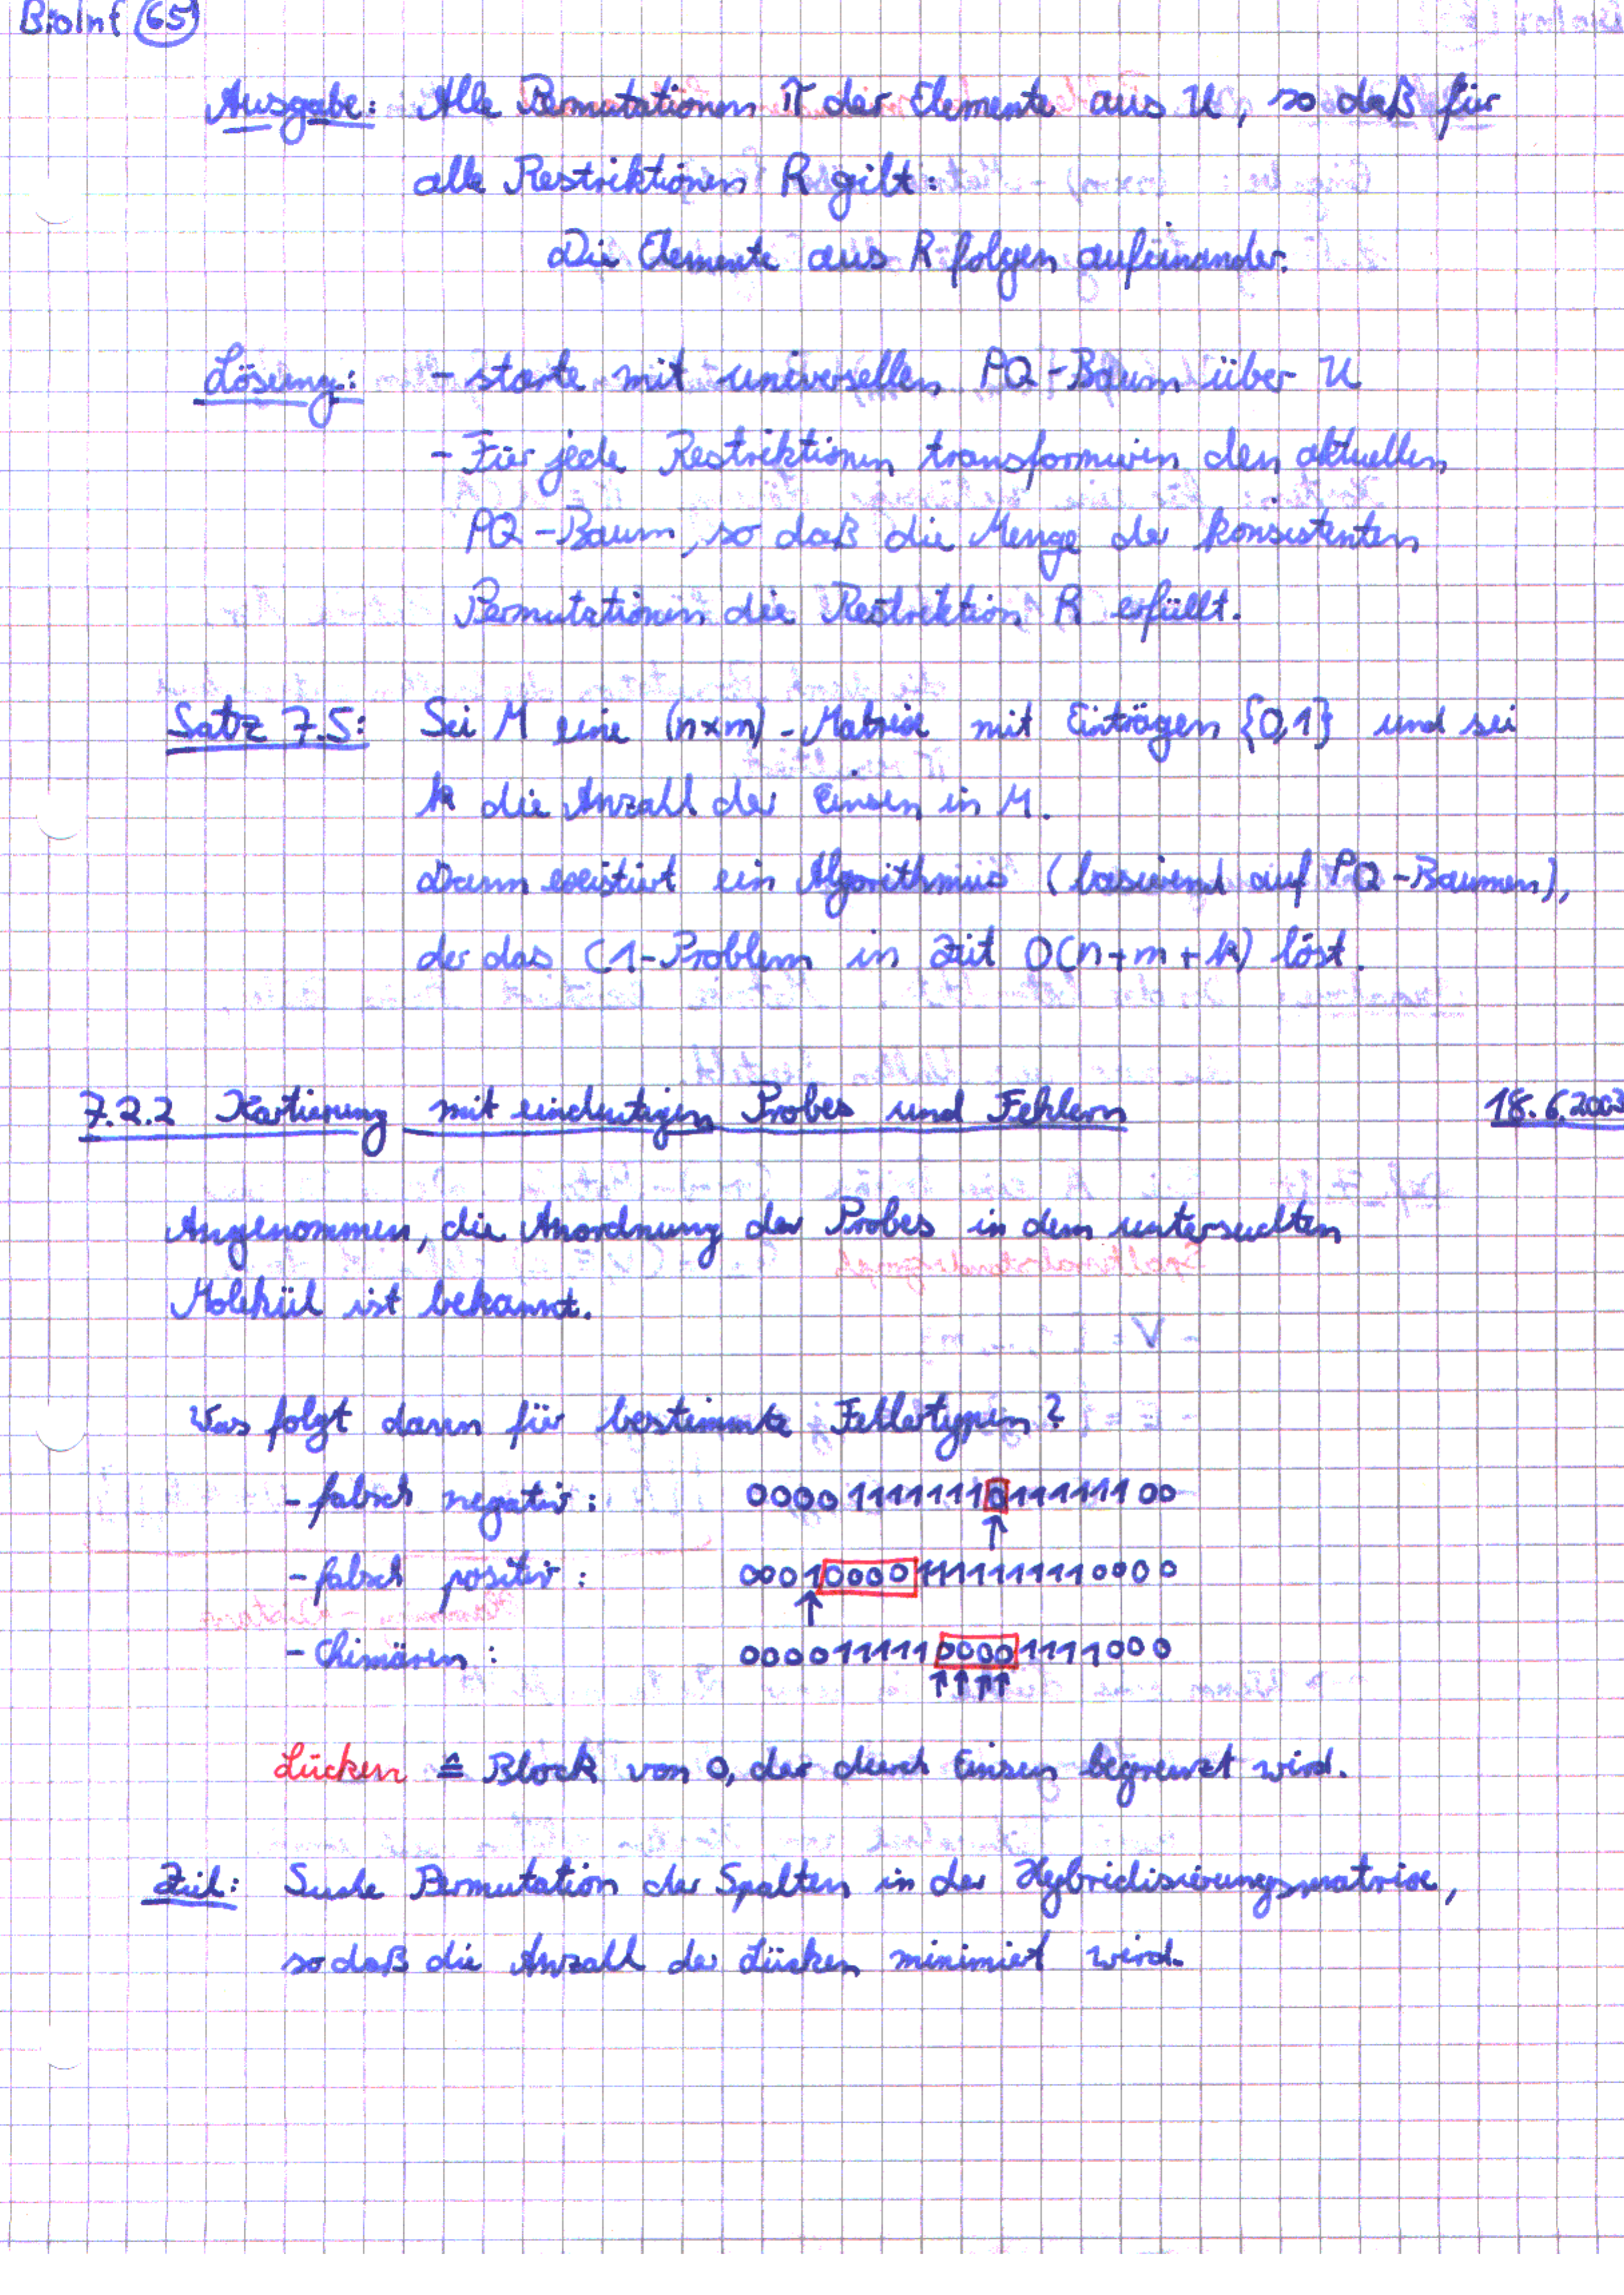 BioInf 65
Ausgabe: Alle Permutationen π der Elemente aus U, so daß für
alle Restriktionen R gilt:
Die Elemente aus R folgen aufeinander.
Lösung: - starte mit universellen PQ-Baum über U
- Für jede Restriktionen transformieren den aktuellen
PQ-Baum, so daß die Menge der konsistenten
Permutationen die Restriktion R erfüllt.
Satz 7.5: Sei M eine (n×m)-Matrix mit Einträgen {0,1} und sei
k die Anzahl der Einsen in M.
Dann existiert ein Algorithmus (basierend auf PQ-Baumen),
der das C1-Problem in Zeit O(n+m+k) löst.
7.2.2 Kartierung mit eindeutigen Probes und Fehlern 18.6.2003
Angenommen, die Anordnung der Probes in dem untersuchten
Molekül ist bekannt.
Was folgt dann für bestimmte Fehlertypen?
- falsch negativ: 000011111110111111100
- falsch positiv: 0001000011111111110000
- Chimären: 00001111100001111000
Lücken ≙ Block von 0, der durch Einsen begrenzt wird.
Ziel: Suche Permutation der Spalten in der Hybridisierungsmatrix,
so daß die Anzahl der Lücken minimiert wird.